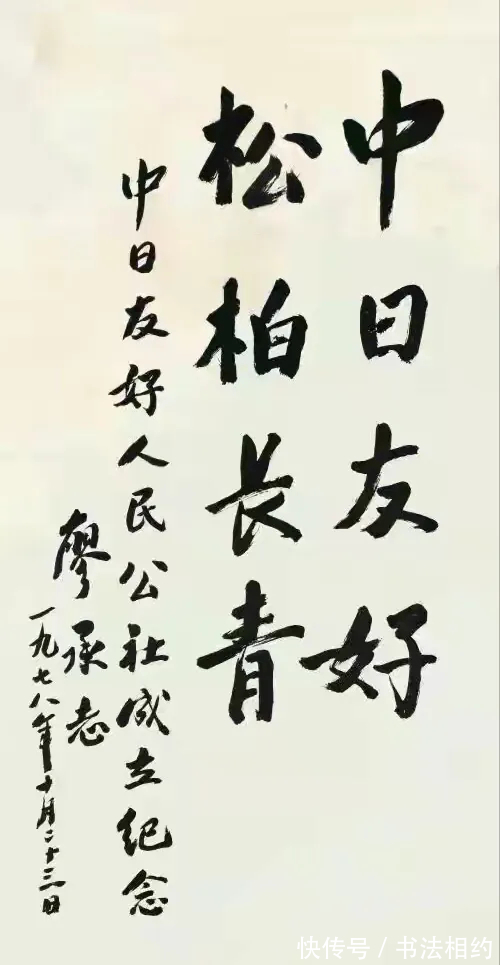 中日友好
松柏长青
中日友好人民公社成立纪念
廖承志
一九七八年十月二十三日
快传号 / 书法相约